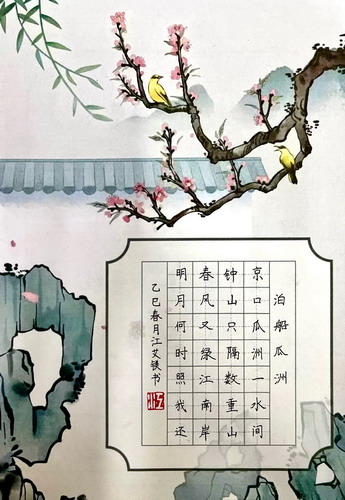 泊船瓜洲
京口瓜洲一水间
钟山只隔数重山
春风又绿江南岸
明月何时照我还
乙巳春月江艾镁书
江